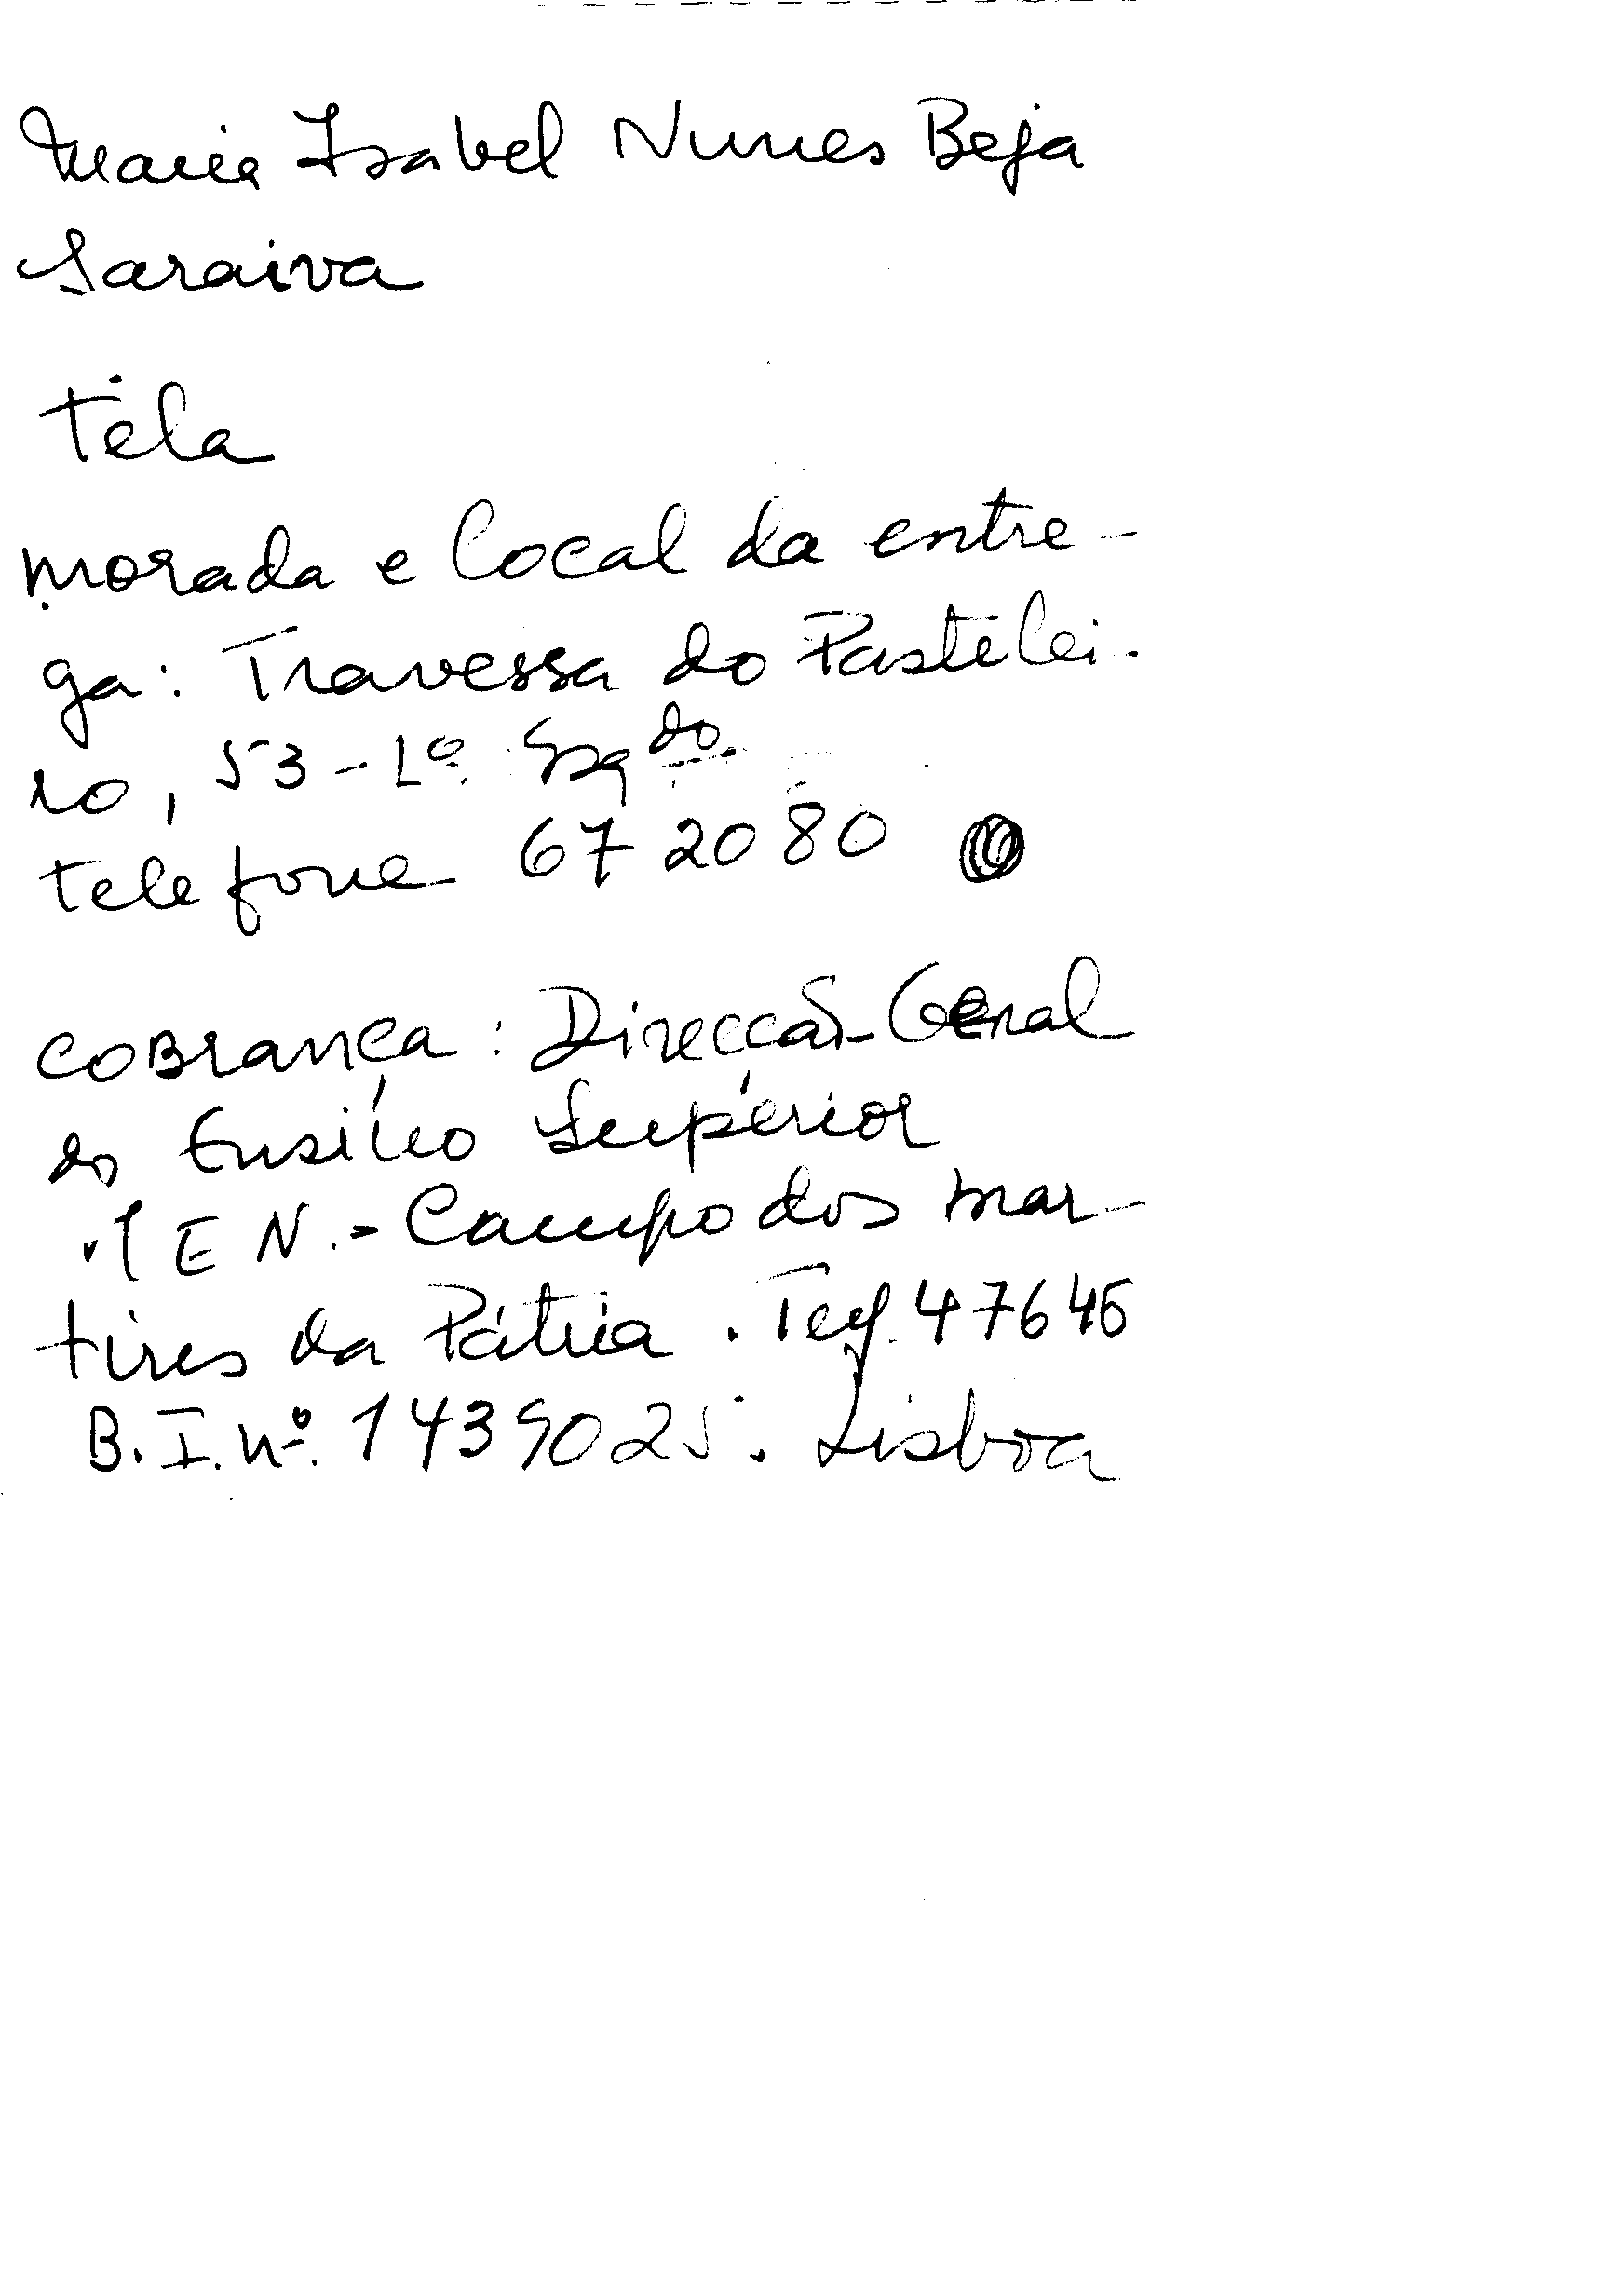 Maria Isabel Nunes Beja
Saraiva
tela
morada e local da entre-
ga: Travessa do Pastelei-
ro, 53-1º. Esqdo.
telefone 67 20 80
cobrança: Direcção-Geral
do Ensino Superior
MEN.- Campo dos mar-
tires da Pátria. Telf. 47646
B.I. nº. 1439025. Lisboa